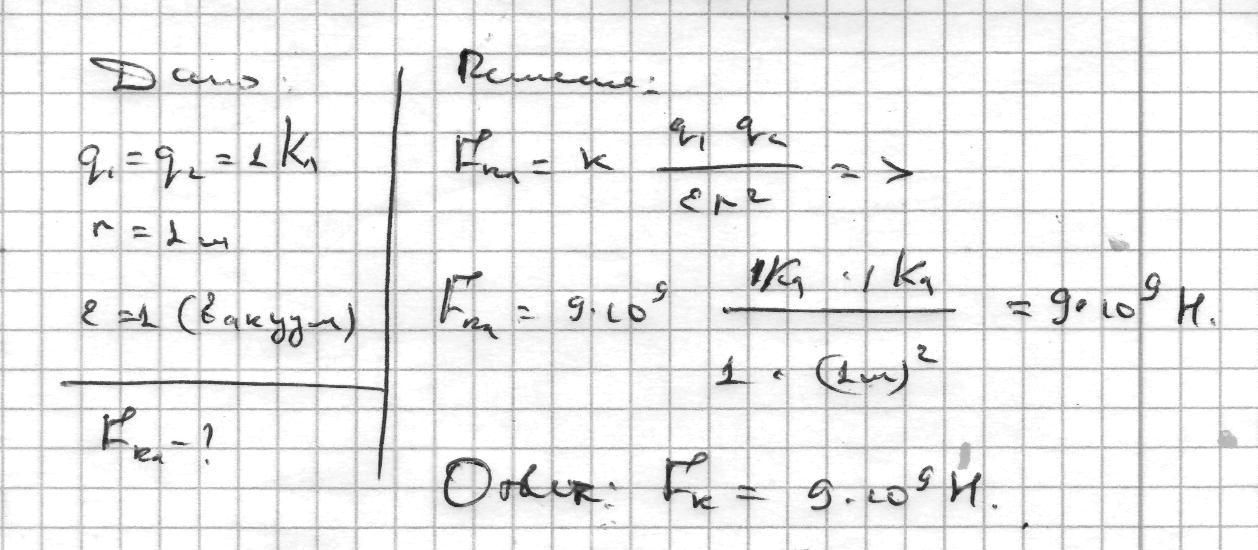 Дано:
q₁ = q₂ = 1 Кл
r = 1 м
ε = 1 (вакуум)
Fкл - ?
Решение:
Fкл = к q₁ q₂ / εr² =>
Fкл = 9·10⁹ 1Кл · 1 Кл / 1 · (1м)² = 9·10⁹ Н.
Ответ: Fк = 9·10⁹ Н.